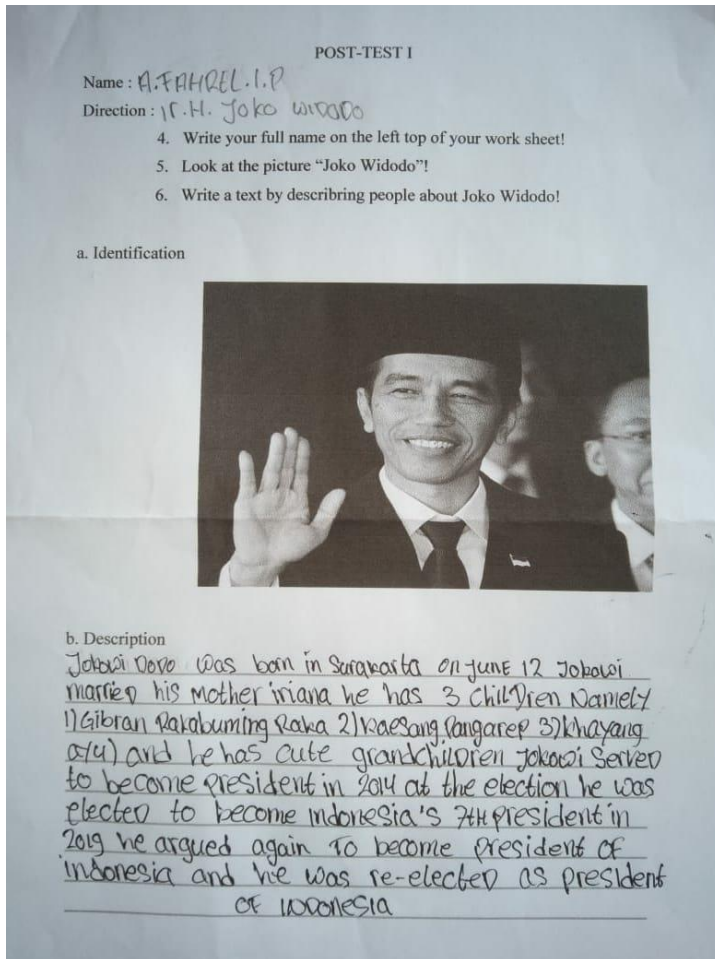 POST-TEST I
Name : A.FAHREL.I.P
Direction : Ir.H. Joko WIDODO
4. Write your full name on the left top of your work sheet!
5. Look at the picture “Joko Widodo”!
6. Write a text by describring people about Joko Widodo!
a. Identification
b. Description
Jokowi Dodo was born in Surakarta on June 12 Jokowi
married his Mother iriana he has 3 children Namely
1) Gibran Rakabuming Raka 2) Kaesang Pangarep 3) khayang
ayu) and he has cute grandchildren Jokowi Served
to become president in 2014 at the election he was
elected to become indonesia's 7TH president in
2019 he argued again To become president of
indonesia and he was re-elected as president
OF INDONESIA